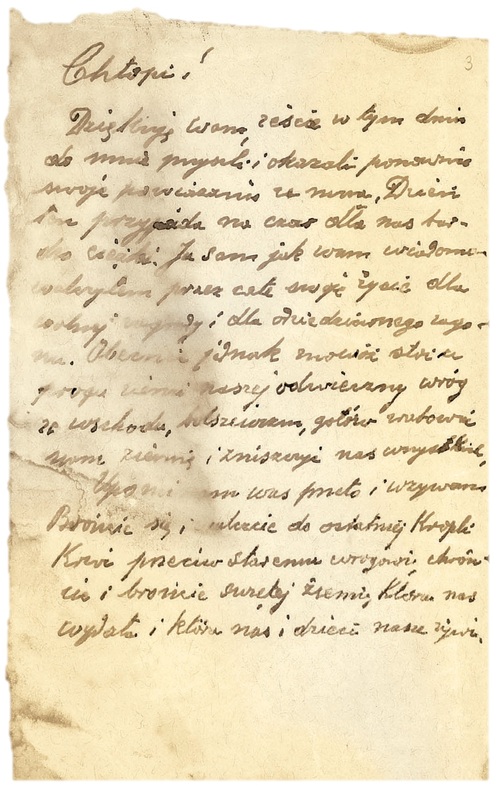 Chłopi! 3
Dziękuję wam, żeście w tym dniu
do mnie przyszli i okazali ponownie
swoje powiązanie ze mną. Dzień
ten przypada na czas dla nas bar-
dzo ciężki. Ja sam jak wam wiadomo
walczyłem przez całe swoje życie dla
wolnej zagrody i dla dziedzicznego zago-
nu. Obecnie jednak znowu stoi u
progu ziemi naszej odwieczny wróg
ze wschodu, bolszewizm, gotów zrabować
nam ziemię i zniszczyć nas wszystkich,
was przeto i wzywam
Brońcie się i walczcie do ostatniej kropli
Krwi przeciw staremu wrogowi, chroń-
cie i brońcie świętej ziemi, która nas
wydała i która nas i dzieci nasze żywi.